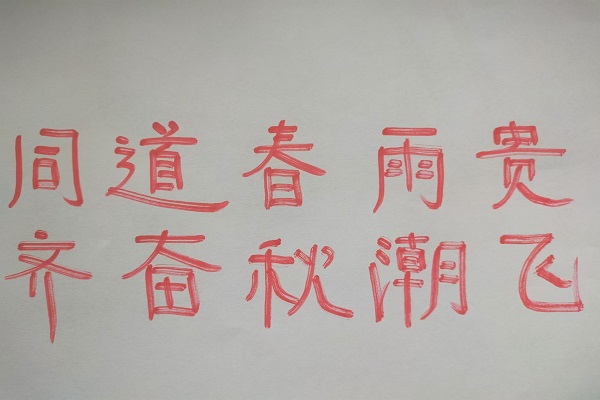 同道春雨贵
齐奋秋潮飞